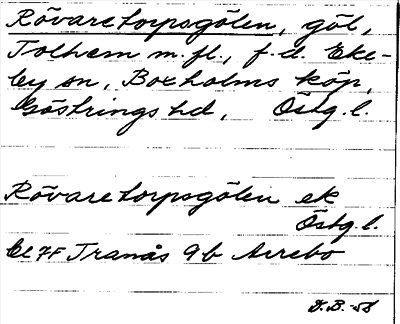 Rövaretorpsgölen, göl,
Tolhem m. fl., f. d. Eke-
by sn, Boxholms köp,
Göstrings hd, Östg. l.
Rövaretorpsgölen ek
Östg. l.
Bl 7F Tranås 9b Arrebo
D. B. -58